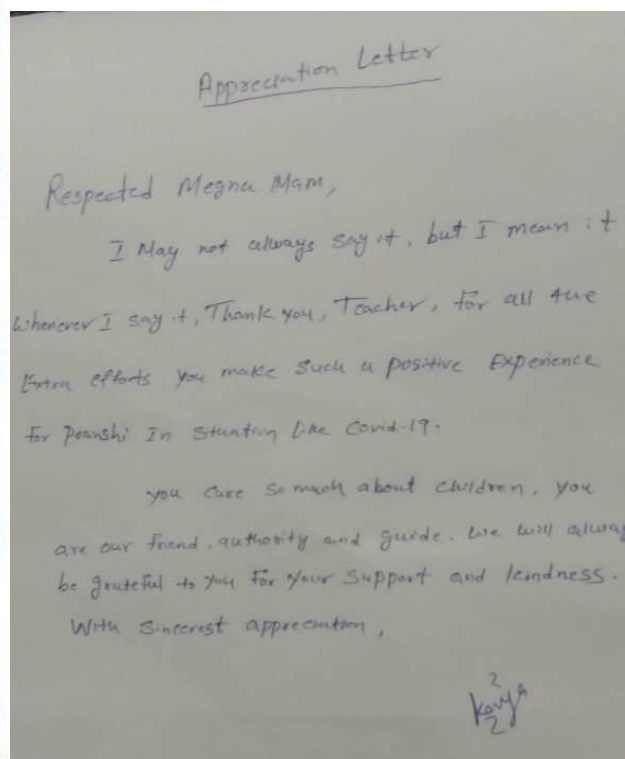 Appreciation Letter
Respected Megna Mam,
I May not always say it, but I mean it
whenever I say it, Thank you, Teacher, for all the
Extra efforts you make such a positive Experience
For In Like Covid-19.
you care so much about children, you
are our friend, authority and guide. we will always
be grateful to you For your support and kindness.
With Sincerest appreciation,